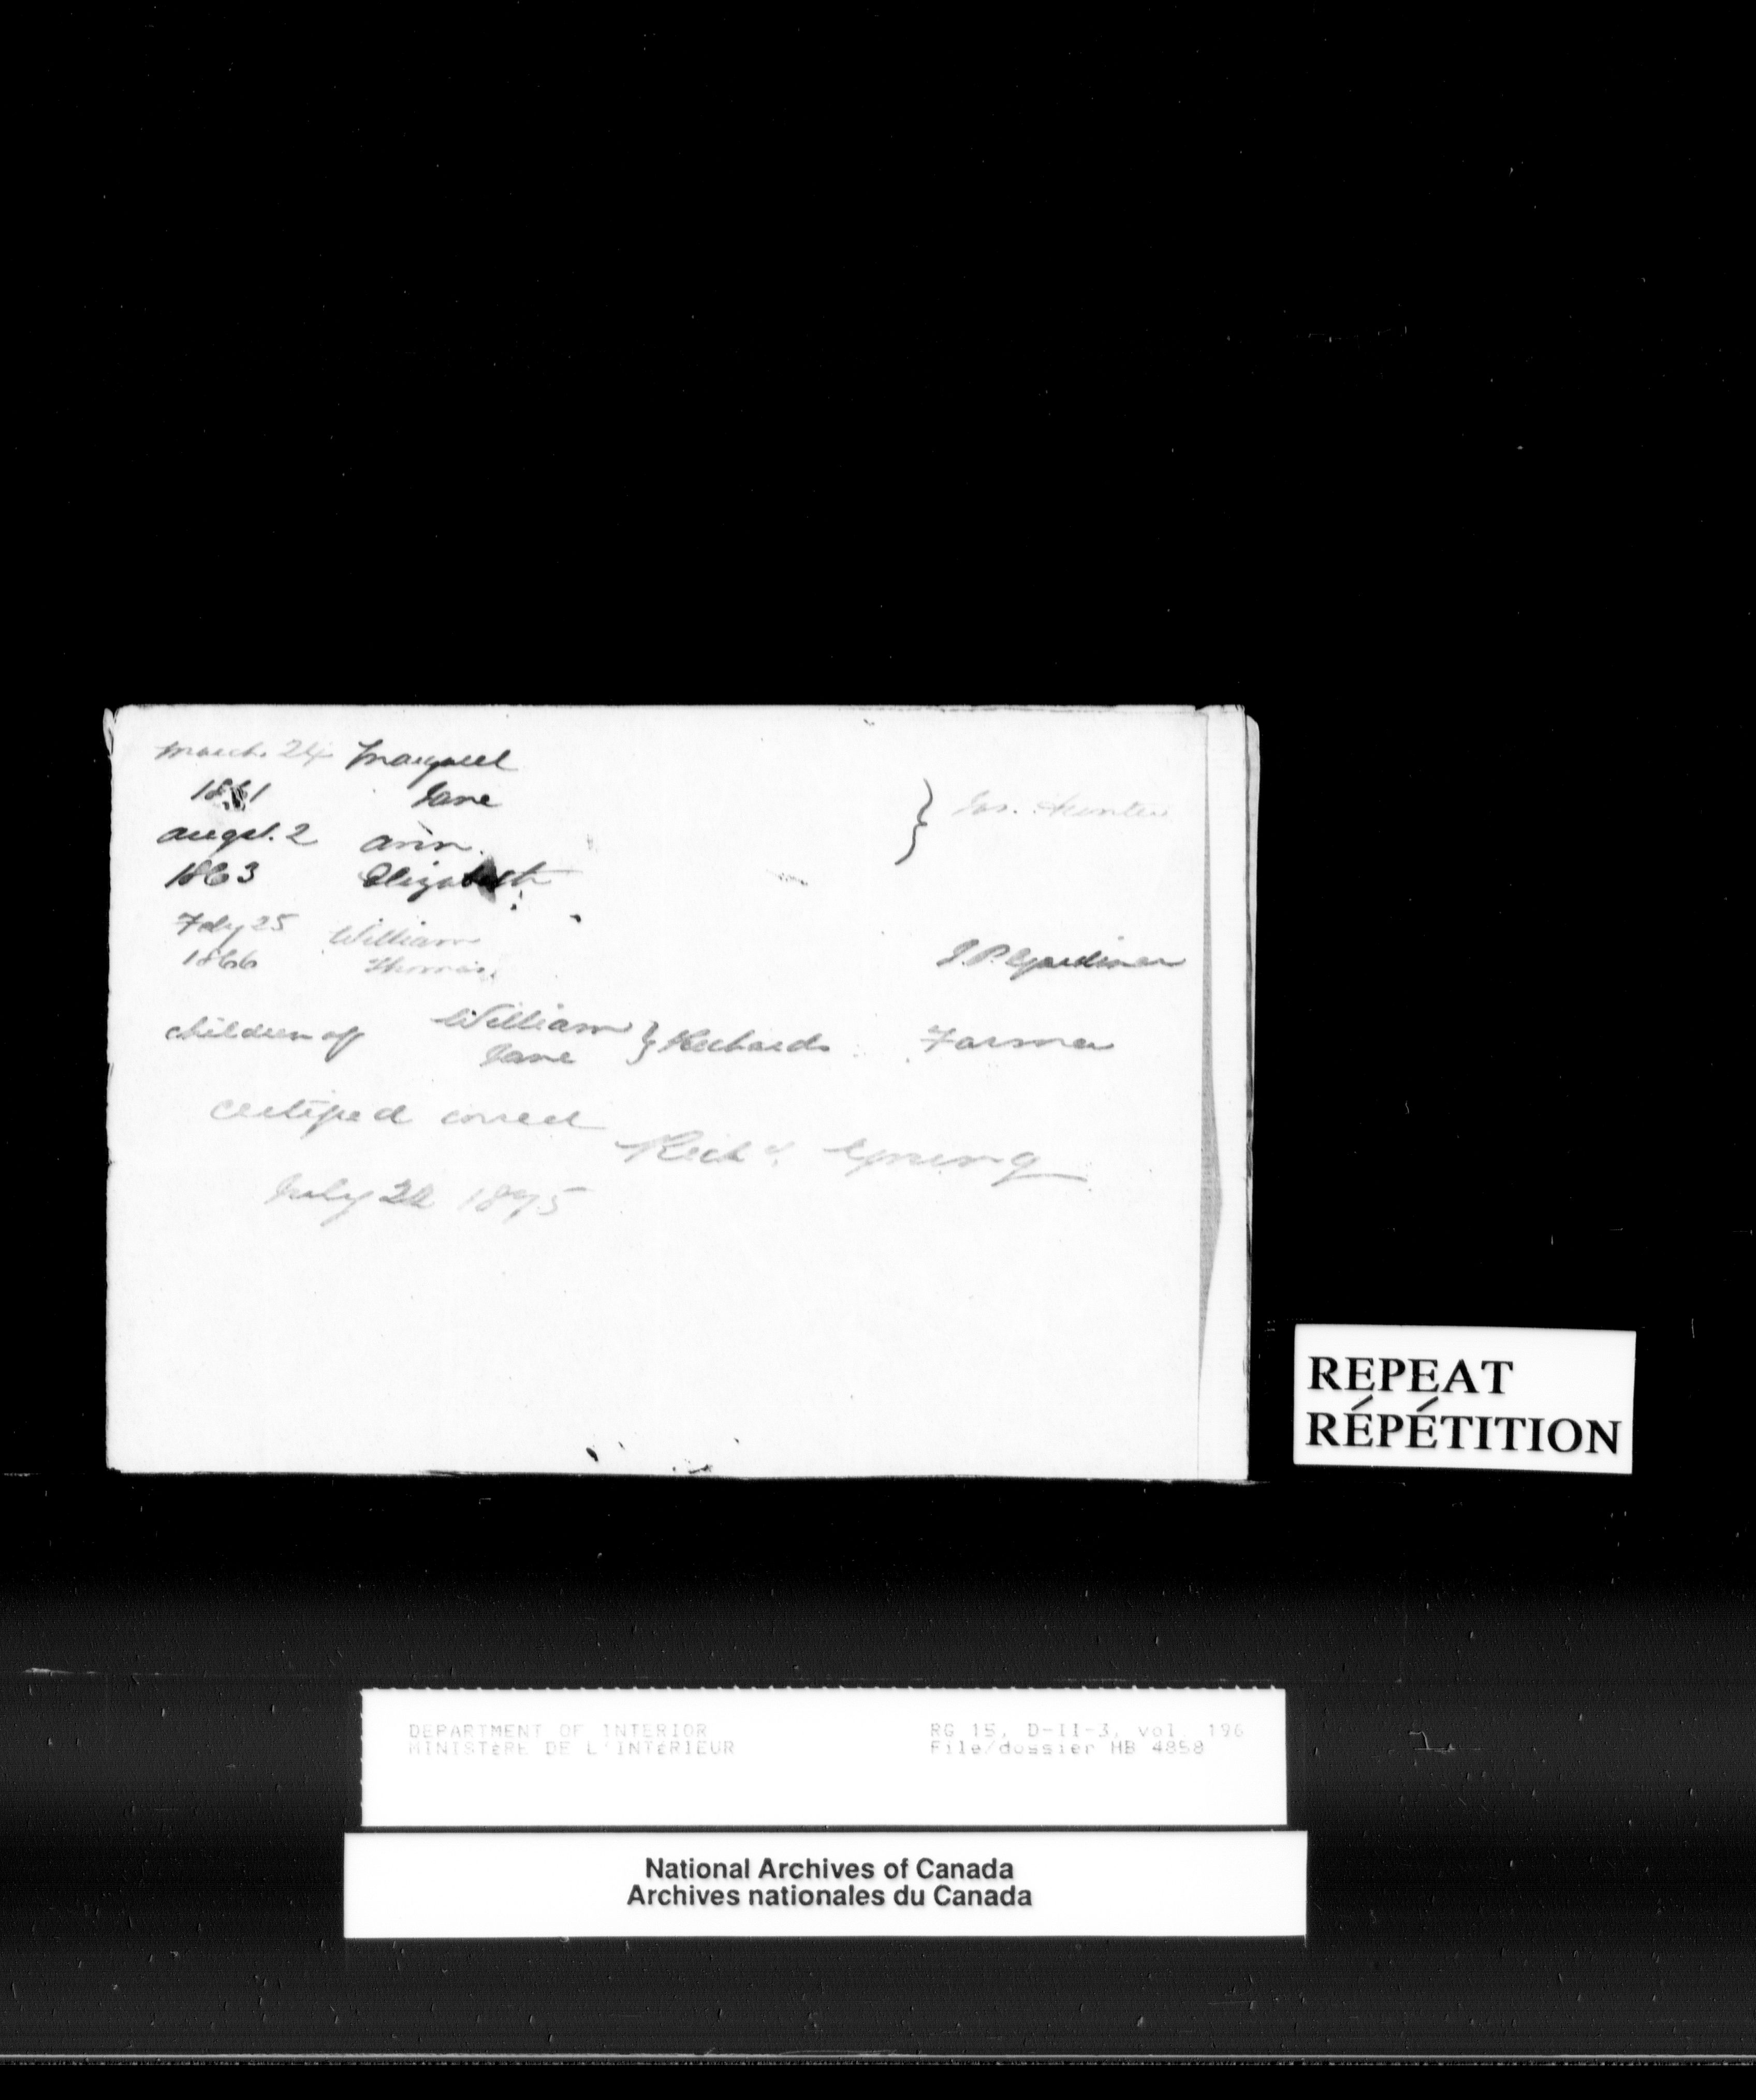 March 24 Margaret
1861 Jane
} Jas. Hunter
Augst. 2 Ann
1863 Elizabeth
Feby 25 William
1866 Thomas.
J. P. Gardiner
Children of William
Jane } Richards Farmer
Certified correct
Richd. Young
July 22 1875
REPEAT
RÉPÉTITION
DEPARTMENT OF INTERIOR
MINISTÈRE DE L'INTÉRIEUR
RG 15, D-II-3, vol. 196
File/dossier HB 4858
National Archives of Canada
Archives nationales du Canada